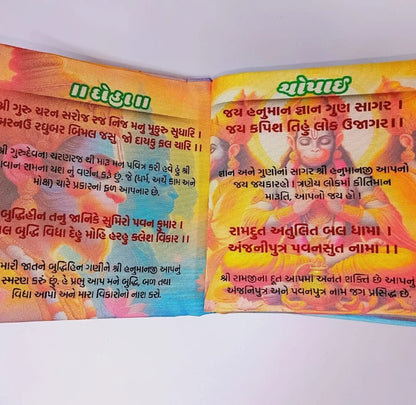 ॥ દોહા ॥
શ્રી ગુરુ ચરન સરોજ રજ નિજ મનુ મુકુરુ સુધારિ ।
બરનઉ રઘુબર બિમલ જસુ જો દાયકુ ફલ ચારિ ।।
શ્રી ગુરુદેવના ચરણરજ થી મારૂ મન પવિત્ર કરી હવે હું શ્રી
ભગવાન રામના યશ નું વર્ણન કરૂ છું. જે (ધર્મ, અર્થ કામ અને
મોક્ષ) ચારે પ્રકારનાં ફળ આપનાર છે.
બુદ્ધિહીન તનુ જાનિકે સુમિરો પવન કુમાર ।
બલ બુદ્ધિ વિદ્યા દેહુ મોહિ હરહુ કલેશ વિકાર ।।
મારી જાતને બુદ્ધિહિન ગણીને શ્રી હનુમાનજી આપનું
સ્મરણ કરૂ છું. હે પ્રભુ આપ મને બુદ્ધિ, બળ તથા
વિદ્યા આપો અને મારા વિકારોનો નાશ કરો.
ચોપાઈ
જય હનુમાન જ્ઞાન ગુણ સાગર ।
જય કપિશ તિહું લોક ઉજાગર ।।
જ્ઞાન અને ગુણોનાં સાગર શ્રી હનુમાનજી આપનો
જય જયકારહો । ત્રણેય લોકમાં કીર્તિમાન
મારૂતિ, આપનો જય હો ।
રામદૂત અતુલિત બલ ધામા ।
અંજનીપુત્ર પવનસુત નામા ।।
શ્રી રામજીના દૂત આપમાં અનંત શક્તિ છે આપના
અંજનિપુત્ર અને પવનપુત્ર નામ જગ પ્રસિદ્ધ છે.